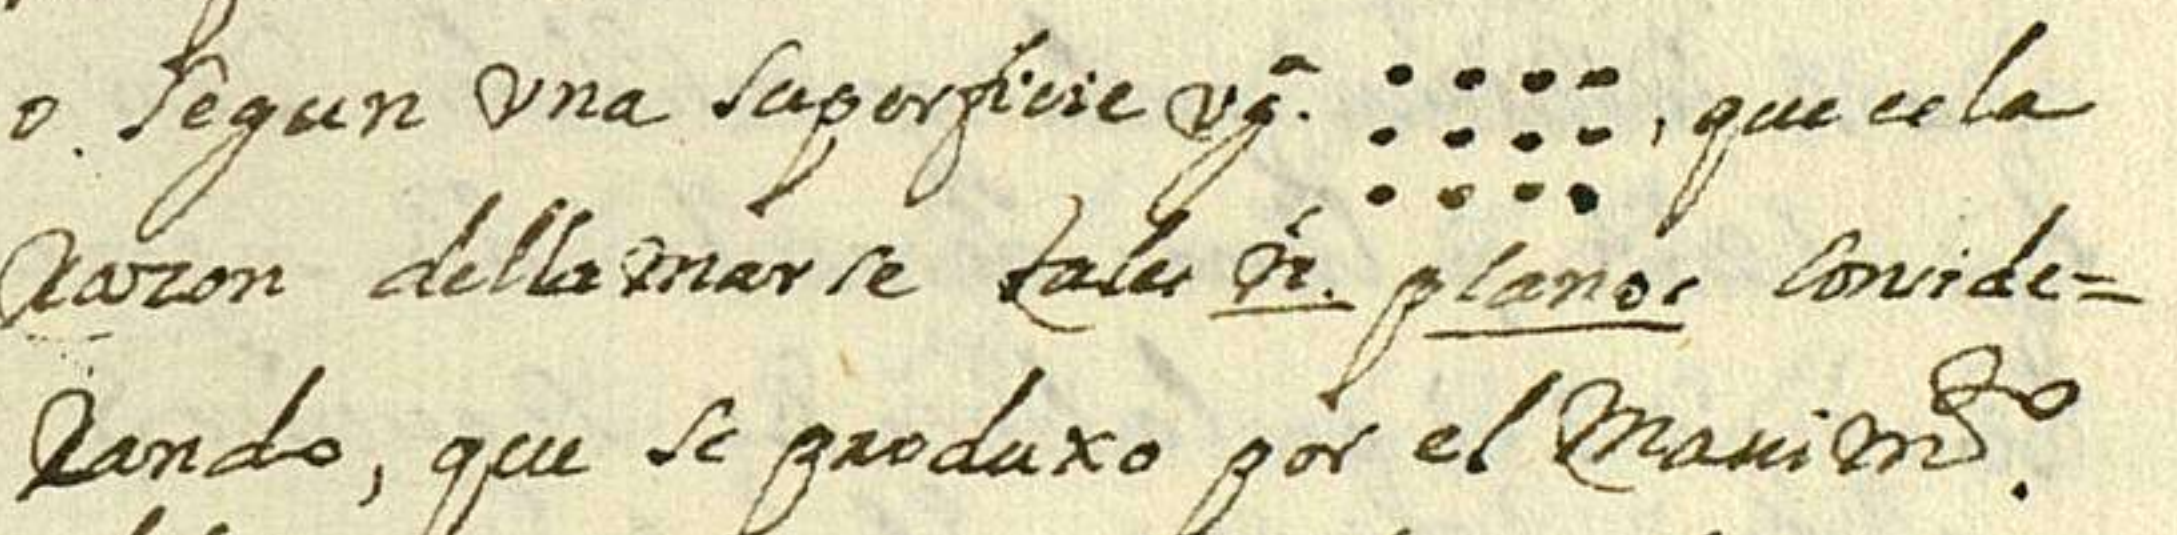 o segun vna superficie vg.ª , que es la
razon dellamarse tales n. planos conside=
rando, que se produxo por el mouim.to